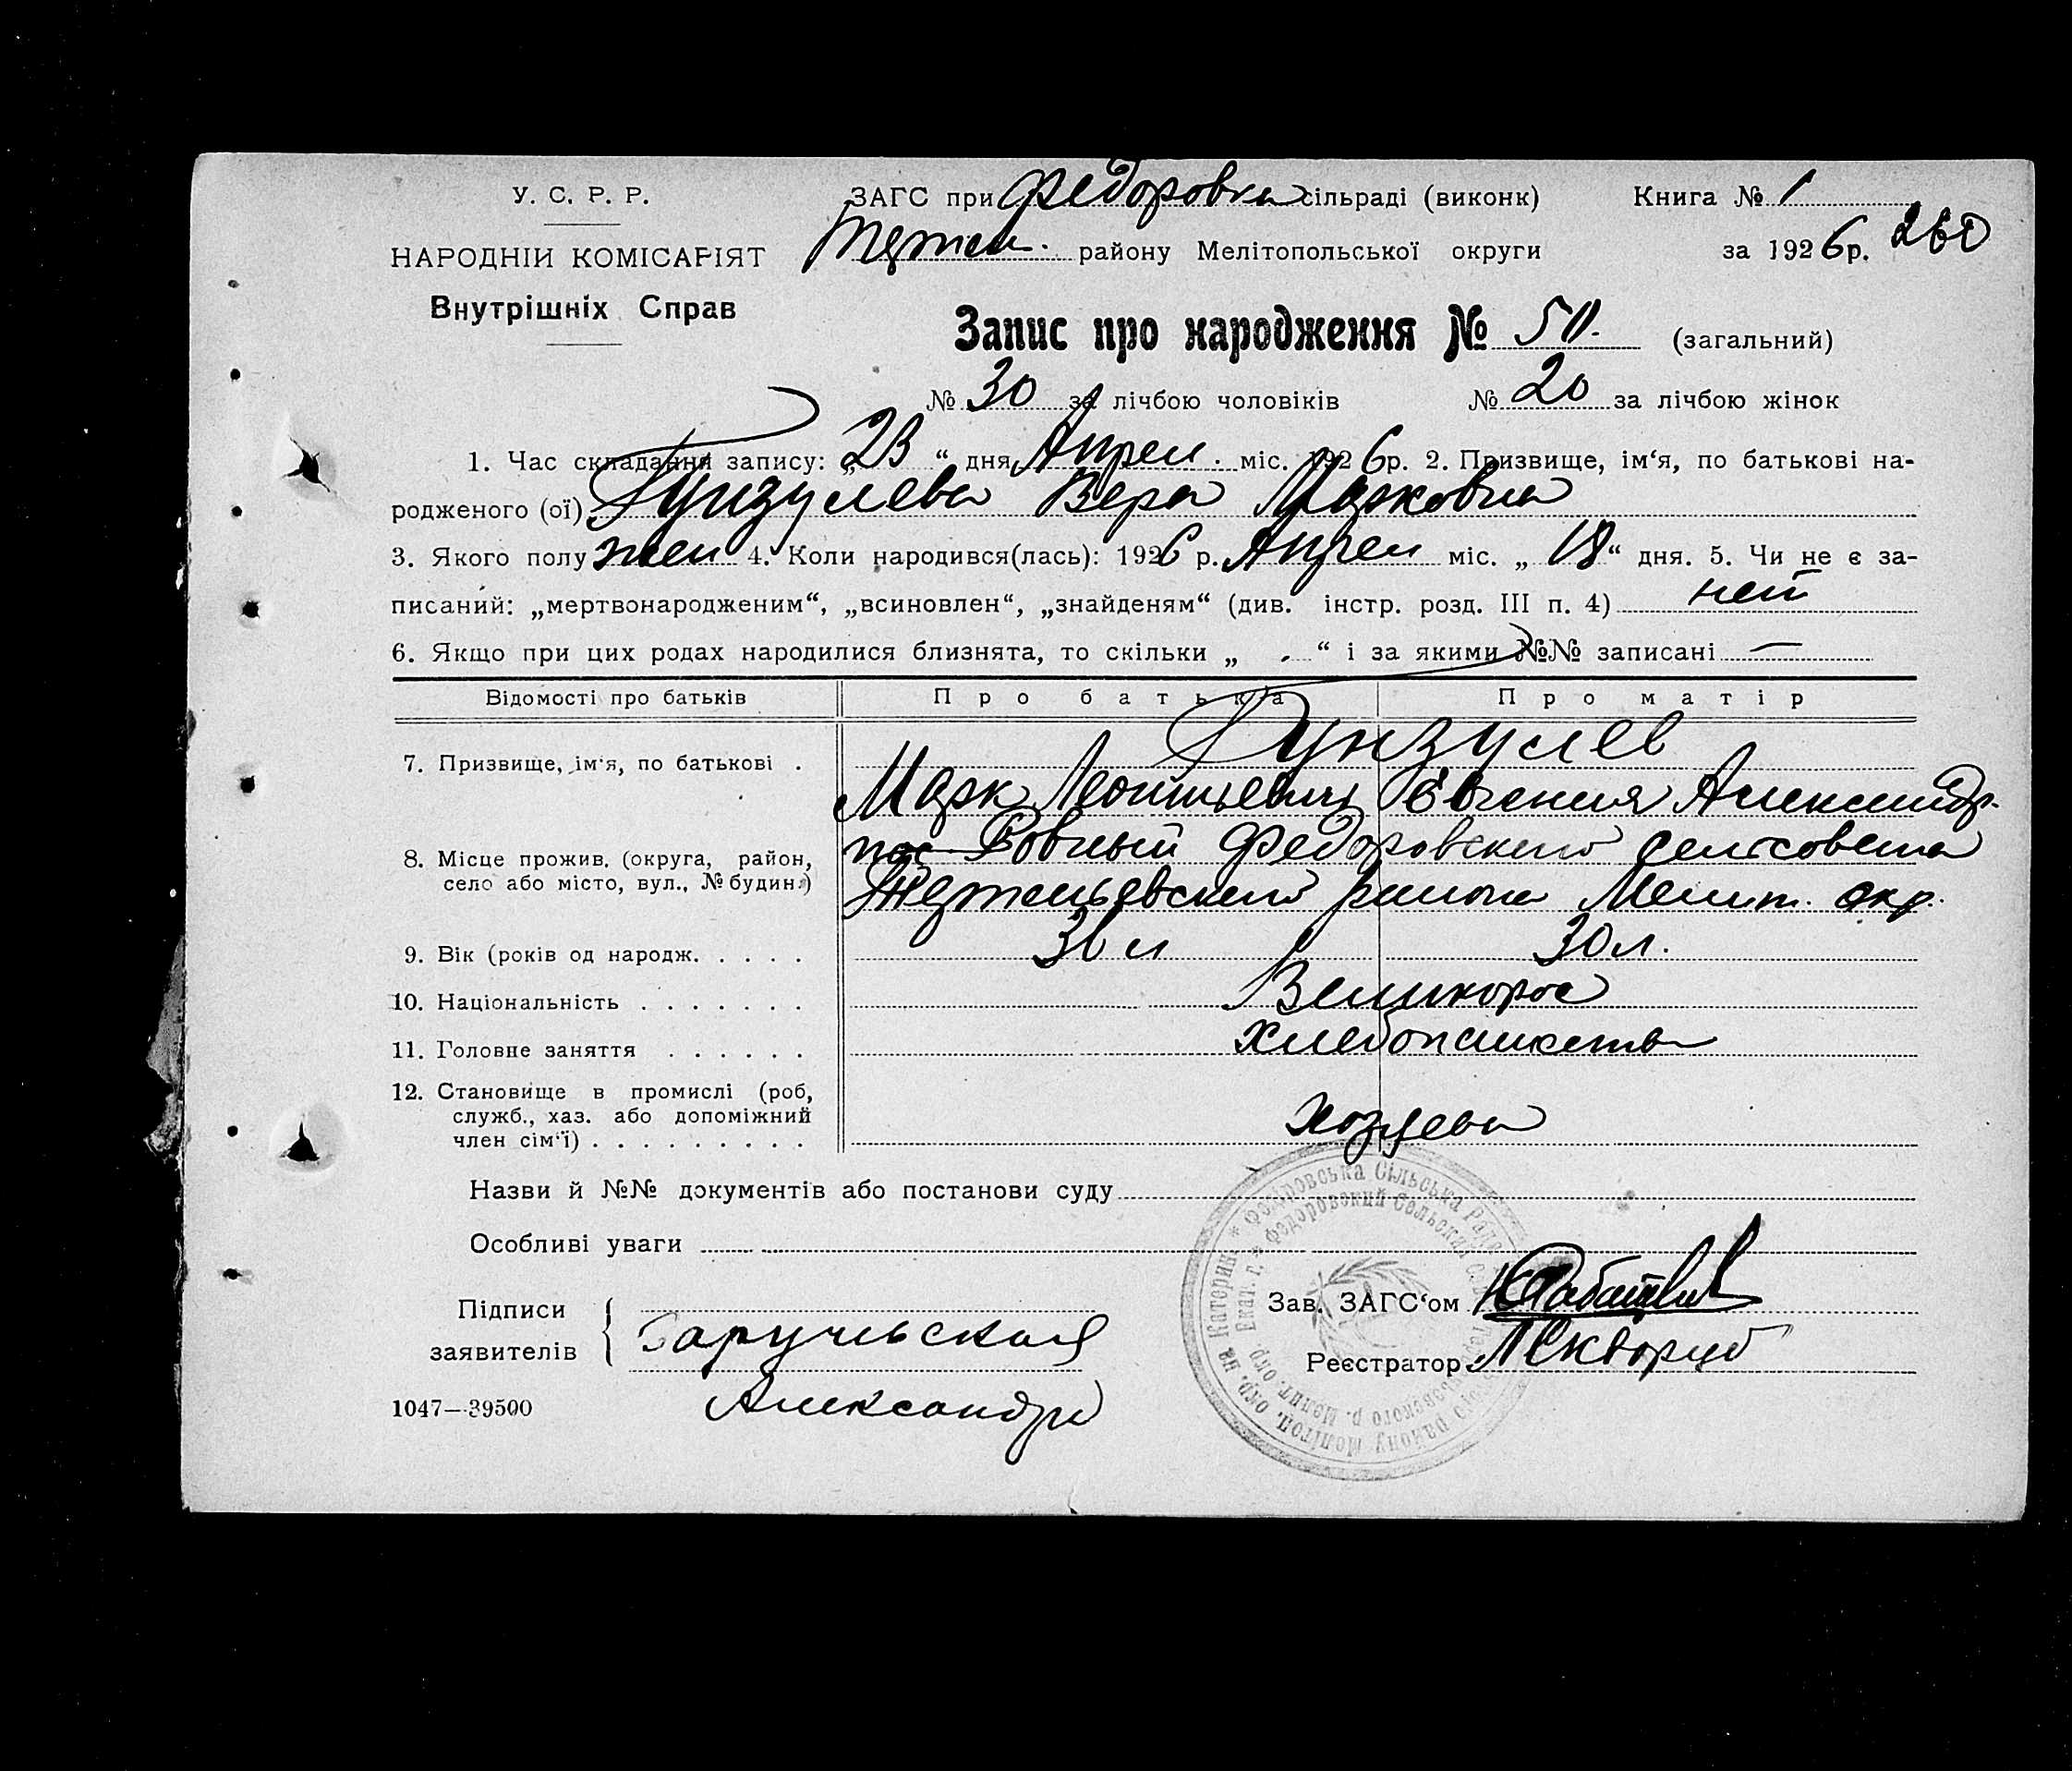 У. С. Р. Р.
ЗАГС при Федоровка сільраді (виконк) Книга № 1
НАРОДНІЙ КОМІСАРІЯТ
району Мелітопольської округи за 1926 р. 260
Внутрішніх Справ
Запис про народження № 50. (загальний)
№ 30 за лічбою чоловіків № 20 за лічбою жінок
1. Час складання запису: „23“ дня Апрел. міс. 1926р. 2. Призвище, ім‘я, по батькові на-
родженого (ої) Гунзулева Вера Марковна
3. Якого полу жен 4. Коли народився(лась): 1926 р. Апрел міс. „18“ дня. 5. Чи не є за-
писаний: „мертвонародженим“, „всиновлен“, „знайденям“ (див. інстр. розд. III п. 4) нет
6. Якщо при цих родах народилися близнята, то скільки „ “ і за якими №№ записані —
Відомості про батьків Про батька Про матір
Гунзулев
7. Призвище, ім‘я, по батькові .
Марк Леонтьевич Евгения Александр.
8. Місце прожив. (округа, район, пос Ровный Федоровского сельсовета
село або місто, вул., № будин.) района Мелит. окр.
9. Вік (років од народж. . . . . 30 л.
10. Національність . . . . . . . Великорос
11. Головне заняття . . . . . . Хлебопашество
12. Становище в промислі (роб,
служб., хаз. або допоміжний
член сім‘ї) . . . . . . . . . Хозяева
Назви й №№ документів або постанови суду
Особливі уваги
Підписи
заявителів
Зав. ЗАГС‘ом
Реєстратор
1047—39500
Александра
Федоровська Сільська Рада
Федоровский Сельский